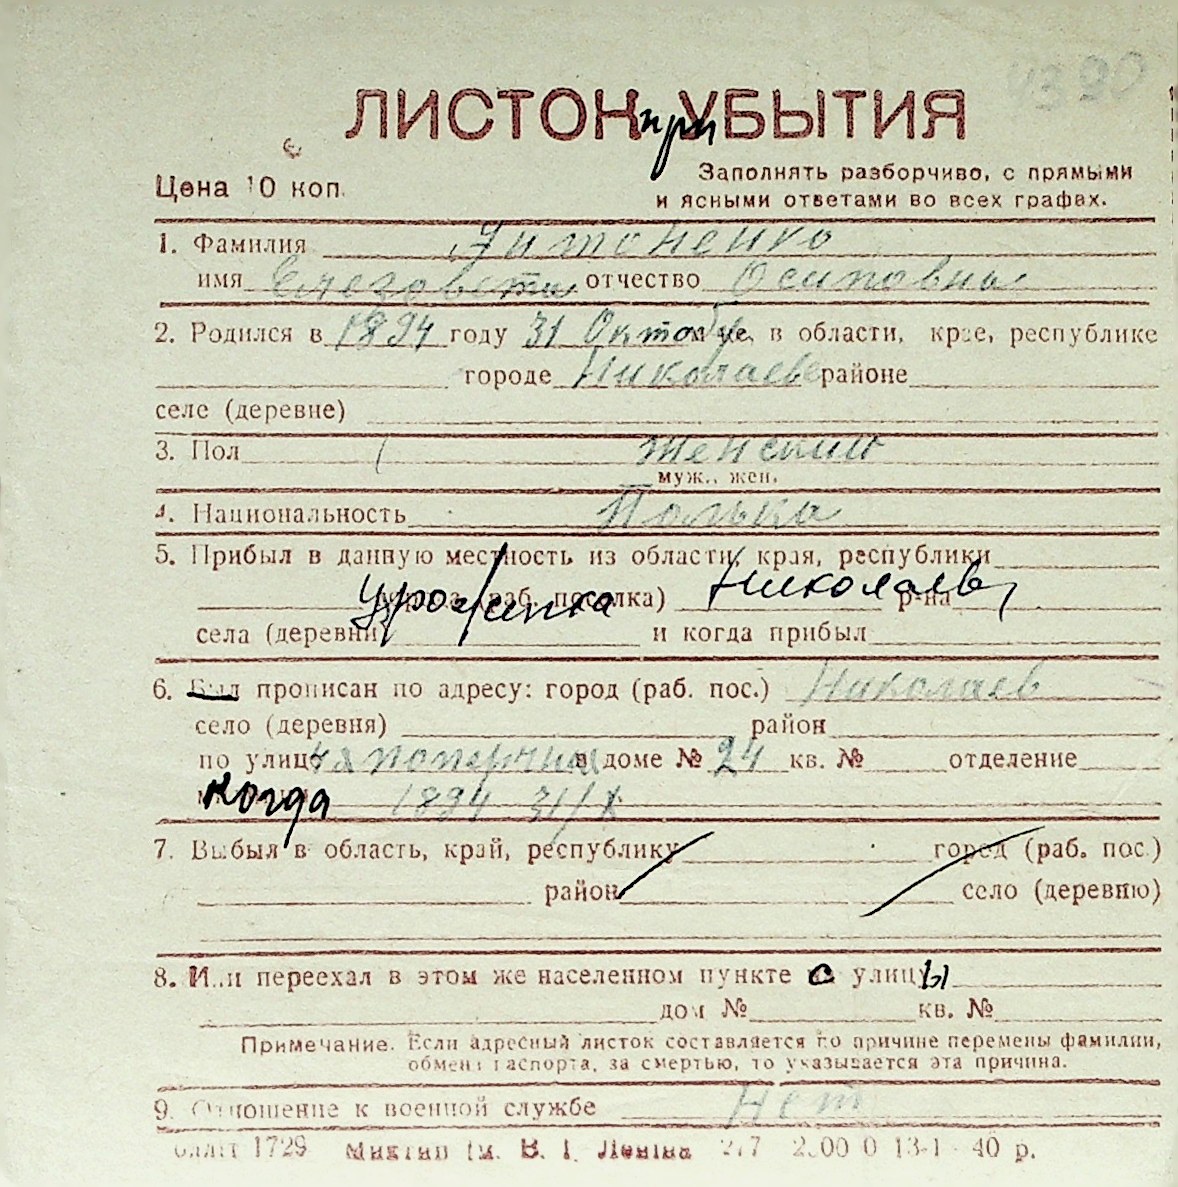 4390
ЛИСТОК при УБЫТИЯ
Цена 10 коп.
Заполнять разборчиво, с прямыми
и ясными ответами во всех графах.
1. Фамилия
имя Елезовета отчество Осиповна
2. Родился в 1894 году 31 Октобр м-це, в области, крае, республике
городе Николаеве районе
селе (деревне)
3. Пол женский
муж., жен.
4. Национальность Полька
5. Прибыл в данную местность из области, края, республики
города (раб. поселка) Уроженка Николаев, р-на
села (деревни) и когда прибыл
6. Был прописан по адресу: город (раб. пос.) Николаев
село (деревня) район
по улице 4я поперечная в доме № 24 кв. № отделение
когда 1894 31/X
7. Выбыл в область, край, республику город (раб. пос.)
район село (деревню)
8. Или переехал в этом же населенном пункте с улицы
дом № кв. №
Примечание. Если адресный листок составляется по причине перемены фамилии,
обмена паспорта, за смертью, то указывается эта причина.
9. Отношение к военной службе Нет
1729 ім. В. І. Леніна 40 р.